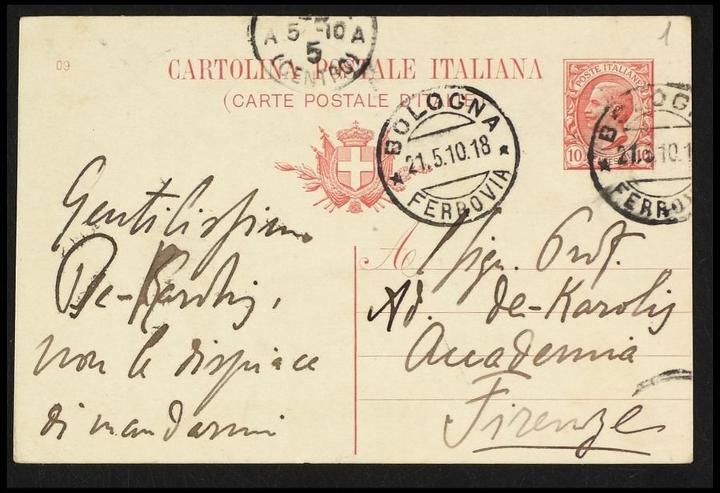 A 5 -10 A
5
(CENTRO)
1
09
CARTOLINA POSTALE ITALIANA
(CARTE POSTALE D'ITALIE)
POSTE ITALIANE
10
BOLOGNA
21.5.10.18
FERROVIA
BOLOGNA
21.5.10.1
FERROVIA
Gentilissimo
De-Karolis,
non le dispiace
di mandarmi
A Sigr. Prof.
Ad. de-Karolis
Accademia
Firenze